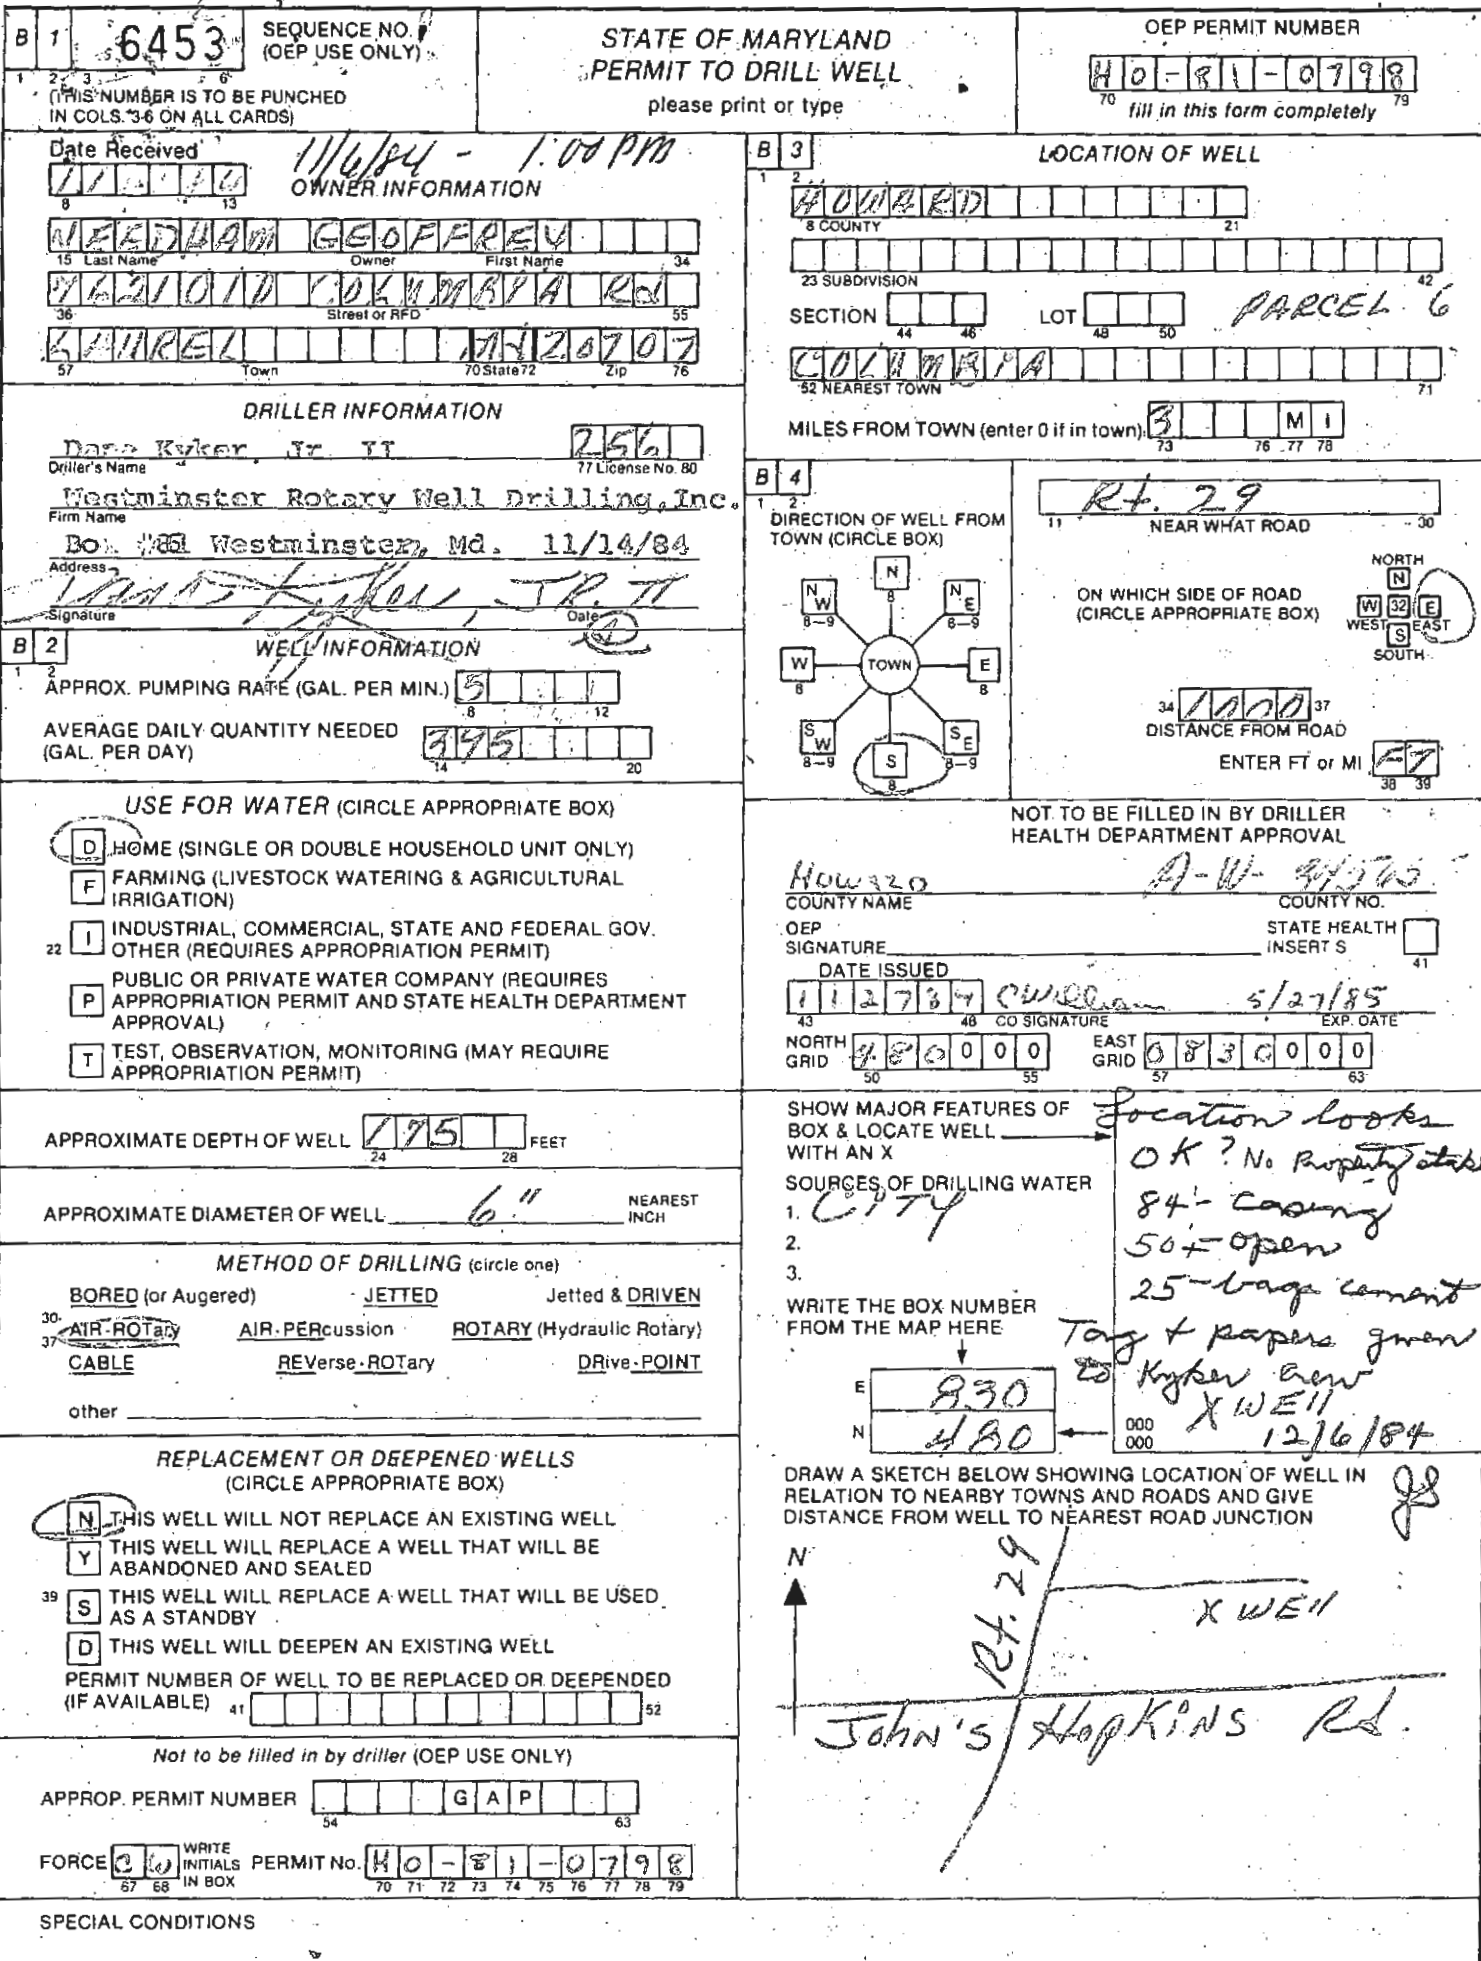 B 1 6453 SEQUENCE NO. (OEP USE ONLY)
1 2 3 6
(THIS NUMBER IS TO BE PUNCHED
IN COLS. 3-6 ON ALL CARDS)
STATE OF MARYLAND
PERMIT TO DRILL WELL
please print or type
OEP PERMIT NUMBER
HO-81-0798
70 79
fill in this form completely
Date Received 11/6/84 - 1:00 PM
8 13
OWNER INFORMATION
NEEDHAM GEOFFREY
15 Last Name Owner First Name 34
7621 Old COLUMBIA Rd
36 Street or RFD 55
LAUREL Md 20707
57 Town 70 State 72 Zip 76
DRILLER INFORMATION
Dana Kyker, Jr. II 256
Driller's Name 77 License No. 80
Westminster Rotary Well Drilling, Inc.
Firm Name
Westminster, Md. 11/14/84
Address
Kyker, JR. II
Signature Date
B 2 WELL INFORMATION
1 2
APPROX. PUMPING RATE (GAL. PER MIN.) 5
8 12
AVERAGE DAILY QUANTITY NEEDED
(GAL. PER DAY) 375
14 20
USE FOR WATER (CIRCLE APPROPRIATE BOX)
D HOME (SINGLE OR DOUBLE HOUSEHOLD UNIT ONLY)
F FARMING (LIVESTOCK WATERING & AGRICULTURAL
IRRIGATION)
22 I INDUSTRIAL, COMMERCIAL, STATE AND FEDERAL GOV.
OTHER (REQUIRES APPROPRIATION PERMIT)
P PUBLIC OR PRIVATE WATER COMPANY (REQUIRES
APPROPRIATION PERMIT AND STATE HEALTH DEPARTMENT
APPROVAL)
T TEST, OBSERVATION, MONITORING (MAY REQUIRE
APPROPRIATION PERMIT)
APPROXIMATE DEPTH OF WELL 175 FEET
24 28
APPROXIMATE DIAMETER OF WELL 6" NEAREST
INCH
METHOD OF DRILLING (circle one)
BORED (or Augered) JETTED Jetted & DRIVEN
30-37 AIR-ROTary AIR-PERcussion ROTARY (Hydraulic Rotary)
CABLE REVerse-ROTary DRive-POINT
other
REPLACEMENT OR DEEPENED WELLS
(CIRCLE APPROPRIATE BOX)
N THIS WELL WILL NOT REPLACE AN EXISTING WELL
Y THIS WELL WILL REPLACE A WELL THAT WILL BE
ABANDONED AND SEALED
39 S THIS WELL WILL REPLACE A WELL THAT WILL BE USED
AS A STANDBY
D THIS WELL WILL DEEPEN AN EXISTING WELL
PERMIT NUMBER OF WELL TO BE REPLACED OR DEEPENDED
(IF AVAILABLE) 41 52
Not to be filled in by driller (OEP USE ONLY)
APPROP. PERMIT NUMBER GAP
54 63
FORCE CW WRITE INITIALS IN BOX PERMIT No. HO-81-0798
67 68 70 71 72 73 74 75 76 77 78 79
SPECIAL CONDITIONS
B 3 LOCATION OF WELL
1 2
HOWARD
8 COUNTY 21
23 SUBDIVISION 42
SECTION LOT PARCEL 6
44 46 48 50
COLUMBIA
52 NEAREST TOWN 71
MILES FROM TOWN (enter 0 if in town) 3 MI
73 76 77 78
B 4
1 2
DIRECTION OF WELL FROM
TOWN (CIRCLE BOX)
N
8
NW NE
8-9 8-9
W TOWN E
8 8
SW SE
8-9 8-9
S
8
Rt. 29
11 NEAR WHAT ROAD 30
ON WHICH SIDE OF ROAD
(CIRCLE APPROPRIATE BOX)
NORTH
N
W 32 E
WEST EAST
S
SOUTH
34 1000 37
DISTANCE FROM ROAD
ENTER FT or MI FT
38 39
NOT TO BE FILLED IN BY DRILLER
HEALTH DEPARTMENT APPROVAL
Howard A-W-
COUNTY NAME COUNTY NO.
OEP
SIGNATURE
STATE HEALTH
INSERT S
41
DATE ISSUED
112784 CWilliam 5/27/85
43 48 CO SIGNATURE EXP. DATE
NORTH
GRID 480000
50 55
EAST
GRID 0830000
57 63
SHOW MAJOR FEATURES OF
BOX & LOCATE WELL
WITH AN X
SOURCES OF DRILLING WATER
1. CITY
2.
3.
WRITE THE BOX NUMBER
FROM THE MAP HERE
E 830
N 480
000
000
Location looks
OK? No Property
84'- casing
50'± open
25-bags cement
Tag + papers given
to Kyker crew
X WEll
12/6/84
JS
DRAW A SKETCH BELOW SHOWING LOCATION OF WELL IN
RELATION TO NEARBY TOWNS AND ROADS AND GIVE
DISTANCE FROM WELL TO NEAREST ROAD JUNCTION
N
Rt. 29
X WEll
John's Hopkins Rd.